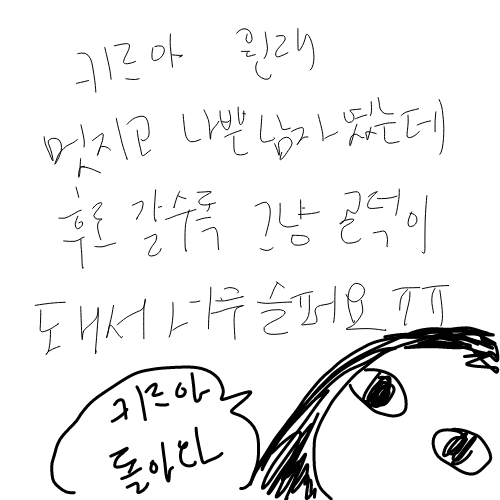 키르아 원래
멋지고 나쁜남자였는데
후로 갈수록 그냥 곤덕이
돼서 너무 슬퍼요 ㅠㅠ
키르아
돌아와